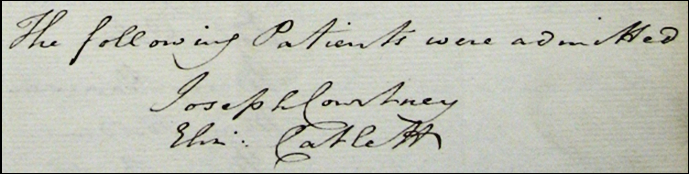 The following Patients were admitted
Joseph Courtney
Eliz: Catlett